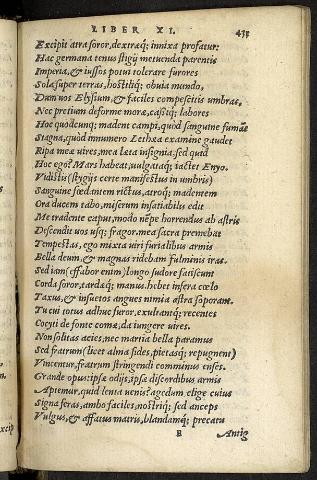 LIBER XI. 431
Excipit atra soror, dextraq; innixa profatur:
Hac germana tenus stigij metuenda parentis
Imperia, & iussos potui tolerare furores
Sola super terras, hostiliq; obuia mundo,
Dum uos Elysium, & faciles compescitis umbras,
Nec pretium deforme moræ, cassiq; labores
Hoc quodcunq; madent campi, quod sanguine fumãt
Stagna, quod innumero Lethæa examine gaudet
Ripa meæ uires, mea læta insignia, sed quid
Hoc ego? Mars habeat, uulgataq; iactet Enyo.
Vidisti (stygijs certe manifestus in umbris)
Sanguine fœdantem rictus, atroq; madentem
Ora ducem tabo, miserum insatiabilis edit
Me tradente caput, modo nẽpe horrendus ab astris
Descendit uos usq; fragor, mea sacra premebat
Tempestas, ego mixta uiri furialibus armis
Bella deum, & magnas ridebam fulminis iras.
Sed iam (effabor enim) longo sudore fatiscunt
Corda soror, tardæq; manus, hebet infera cœlo
Taxus, & insuetos angues nimia astra soporant.
Tu cui totus adhuc furor, exultantq; recentes
Cocyti de fonte comæ, da iungere uires.
Non solitas acies, nec martia bella paramus
Sed fratrum (licet alma fides, pietasq; repugnent)
Vincentur, fratrum stringendi comminus enses.
Grande opus: ipsæ odijs, ipsæ discordibus armis
Aptemur, quid lenta uenis? agedum elige cuius
Signa feras, ambo faciles, nostriq; sed anceps
Vulgus, & affatus matris, blandamq; precatu
E Antig